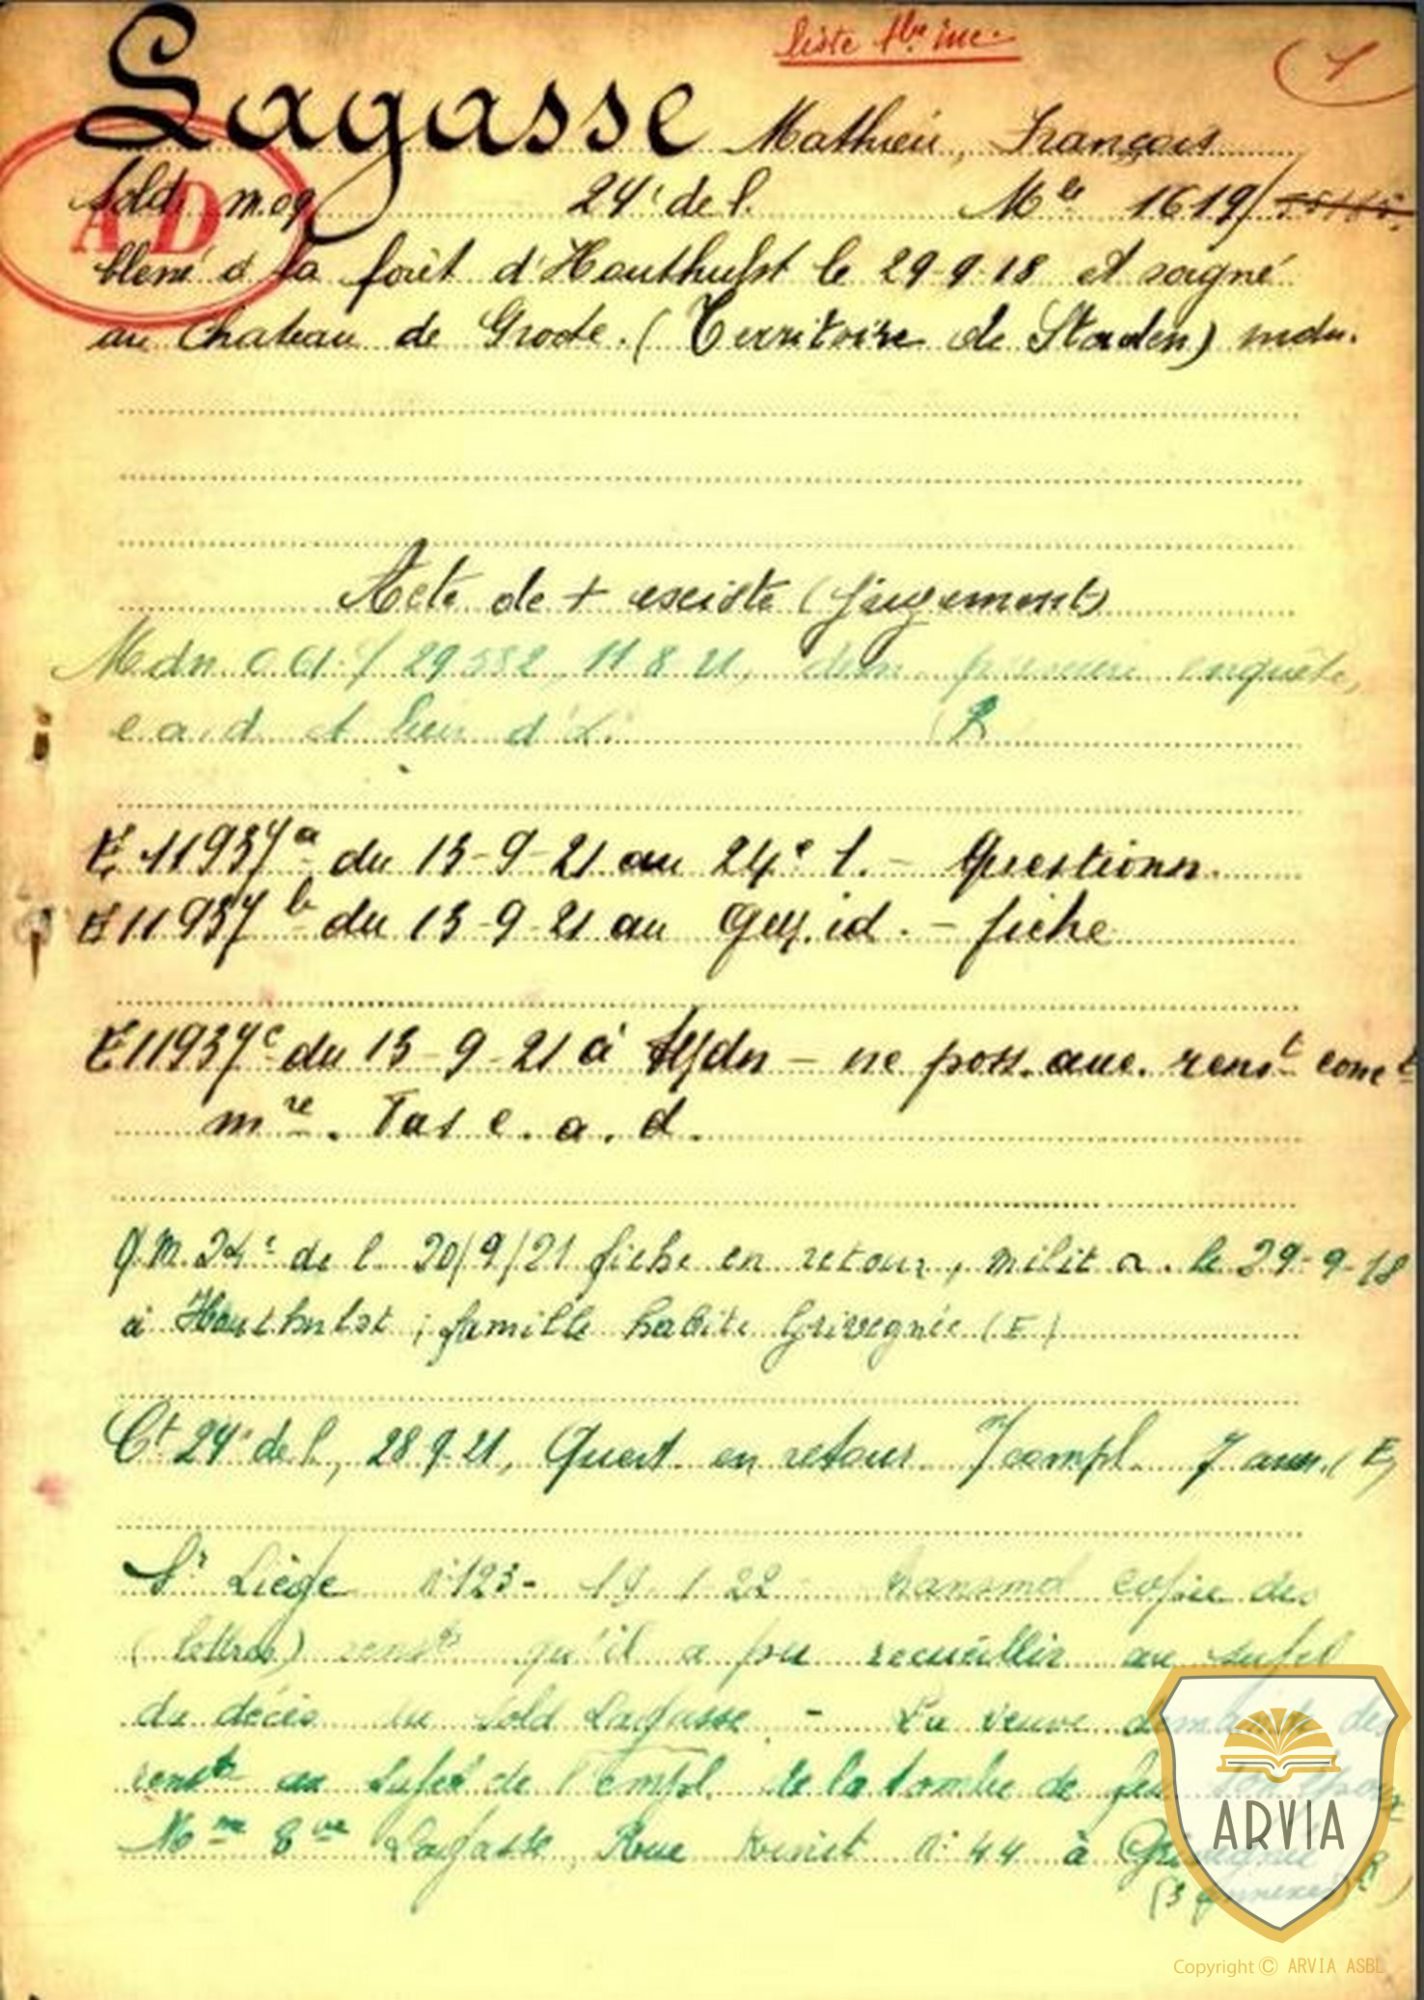 liste tbe inc.
1
Lagasse Mathieu, François
AD
Sold. m. 09 24e de l. Mle 1619/
blessé à la forêt d'Houthulst le 29-9-18 et soigné
au Chateau de Grode. (Territoire de Staden) mdn.
Acte de + existe (jugement)
Mdn 29582, 11 8 21, enquête,
e. a. d. et lieu d'
E 11937a du 13-9-21 au 24e l. - Questionn.
E 11937b du 13-9-21 au id. - fiche
E 11937c du 13-9-21 à Mdn - ne poss. auc. renst conct
mre. Pas e. a. d.
Q.M. 24e de l. 20/9/21 fiche en retour, milit le 29-9-18
à Houthulst ; famille habite Grivegnée (E)
Ct 24e de l, 28.9.21, Quest. en retour compl. ann. (E)
Liège n° 123 - 19 1 22 - transmet copie des
(lettres) renst qu'il a pu recueillir au sujet
du décès du sold Lagasse. - La veuve demande des
renst au sujet de l'empl. de la tombe de feu son époux
Mme Vve Lagasse, Rue Kinet n° 44 à Grivegnée R
(3 annexes)
ARVIA
Copyright © ARVIA ASBL